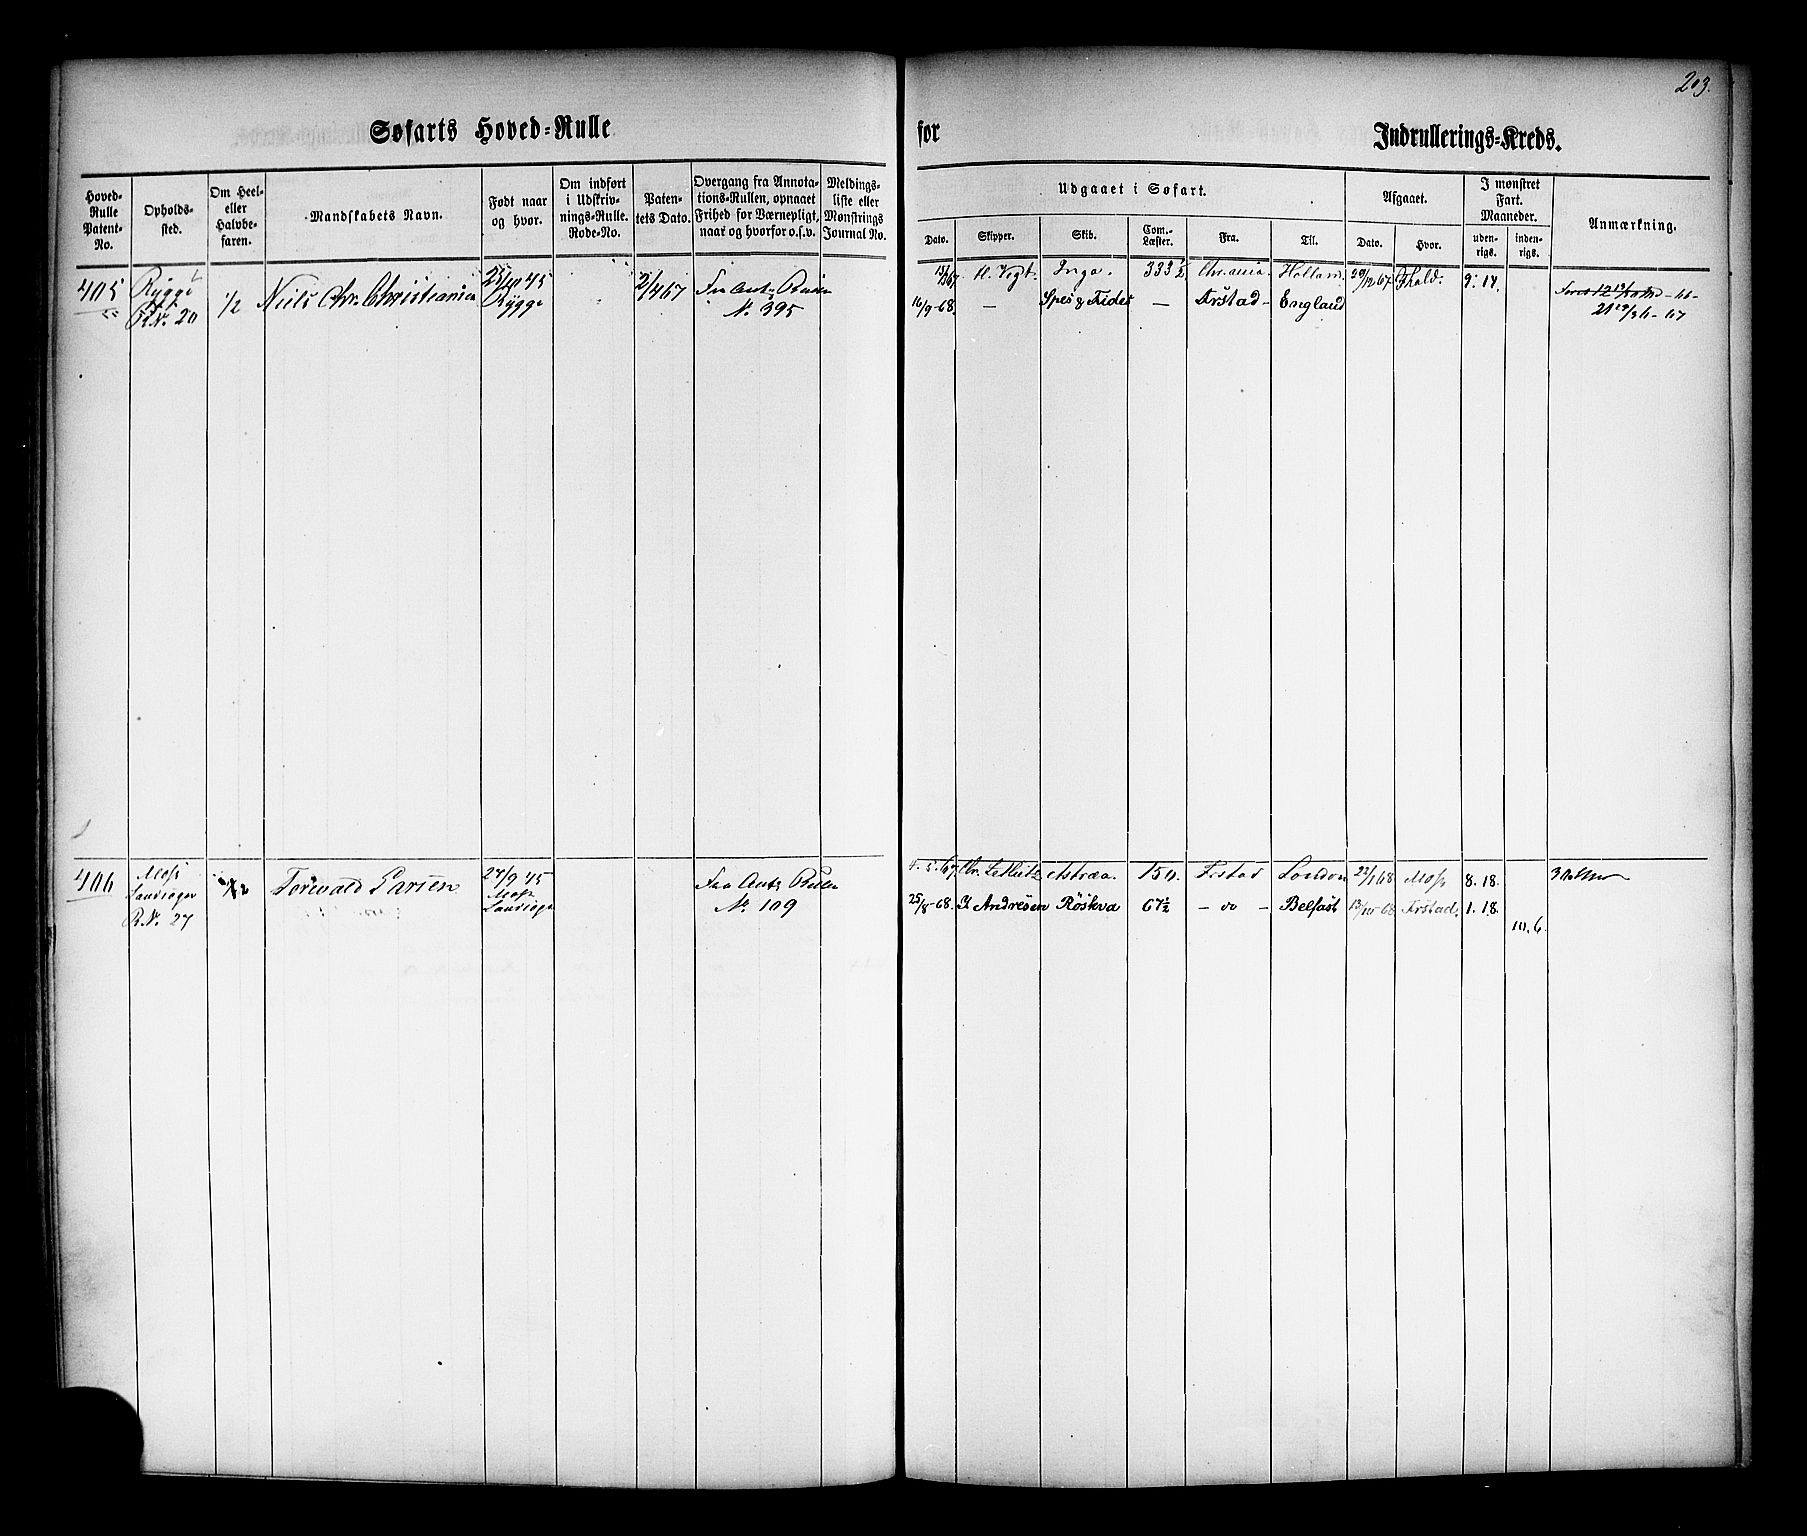 203.
Søfarts Hoved-Rulle
for
Indrullerings-Kreds.
Hoved-Rulle Patent-No.
Opholds-sted.
Om Heel- eller Halvbe-faren.
Mandskabets Navn.
Født naar og hvor.
Om indført i Udskriv-nings-Rulle. Rode-No.
Paten-tets Dato.
Overgang fra Annota-tions-Rullen, opnaaet Frihed for Værnepligt, naar og hvorfor o.s.v.
Meldings-liste eller Mønstrings Journal No.
Udgaaet i Søfart.
Dato.
Skipper.
Skib.
Com.-Læster.
Fra.
Til.
Afgaaet.
Dato.
Hvor.
I mønstret Fart. Maaneder.
uden-rigs.
inden-rigs.
Anmærkning.
405 Rygge ½ Niels Chr. Christiansen 45 2/4 67 Fra Ant. Rullen 67 H. Vogt. Inga. 333 ½ Chr.ania Holland 29/12 67 Fhald. 9. 14.
R.N. 20 Rygge N. 395 16/9-68. — Spes & Fides — Frstad - England
406 Moss ½ Torwald Larsen 27/9 45 Fra Ant. Rullen 4. 5. 67 Astræa. 150. Frstad London 22/1 68 Moss 8. 18.
Landsogn Moss N. 109 25/8-68. Andresen Röskva 67½ - do - Belfast 68 Frstad. 1. 18.
R.N. 27 Landsogn 10. 6.